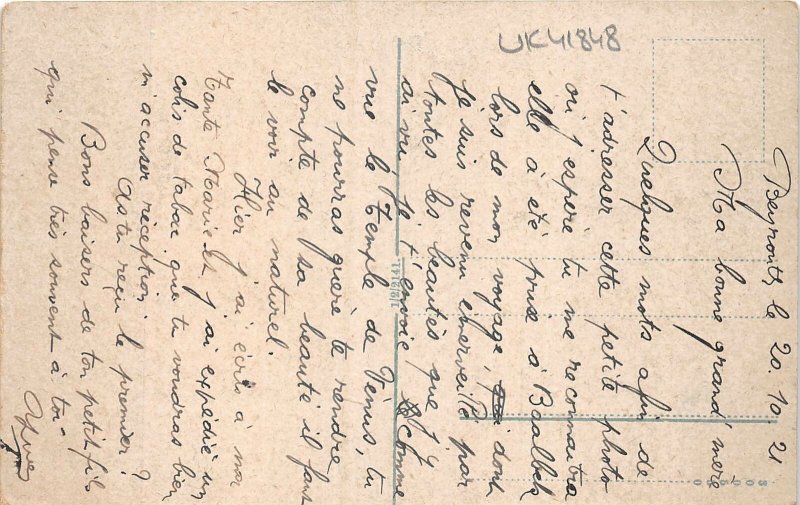 UK41848
Beyrouth, le 20.10.21
Ma bonne grand'mère
Quelques mots afin de
t'adresser cette petite photo
où j'espère tu me reconnaitra
elle a été prise à Baalbek
lors de mon voyage, dont
je suis revenu émerveillé par
toutes les beautés que j'y
ai vu. Je t'envoie comme
vue le Temple de Vénus, tu
ne pourras guère te rendre
compte de sa beauté il faut
le voir au naturel.
Hier j'ai écris à ma
Tante Marie et j'ai expédié un
colis de tabac que tu voudras bien
m'accuser réception.
As tu reçu le premier?
Bons baisers de ton petit fils
qui pense très souvent à toi
Yves